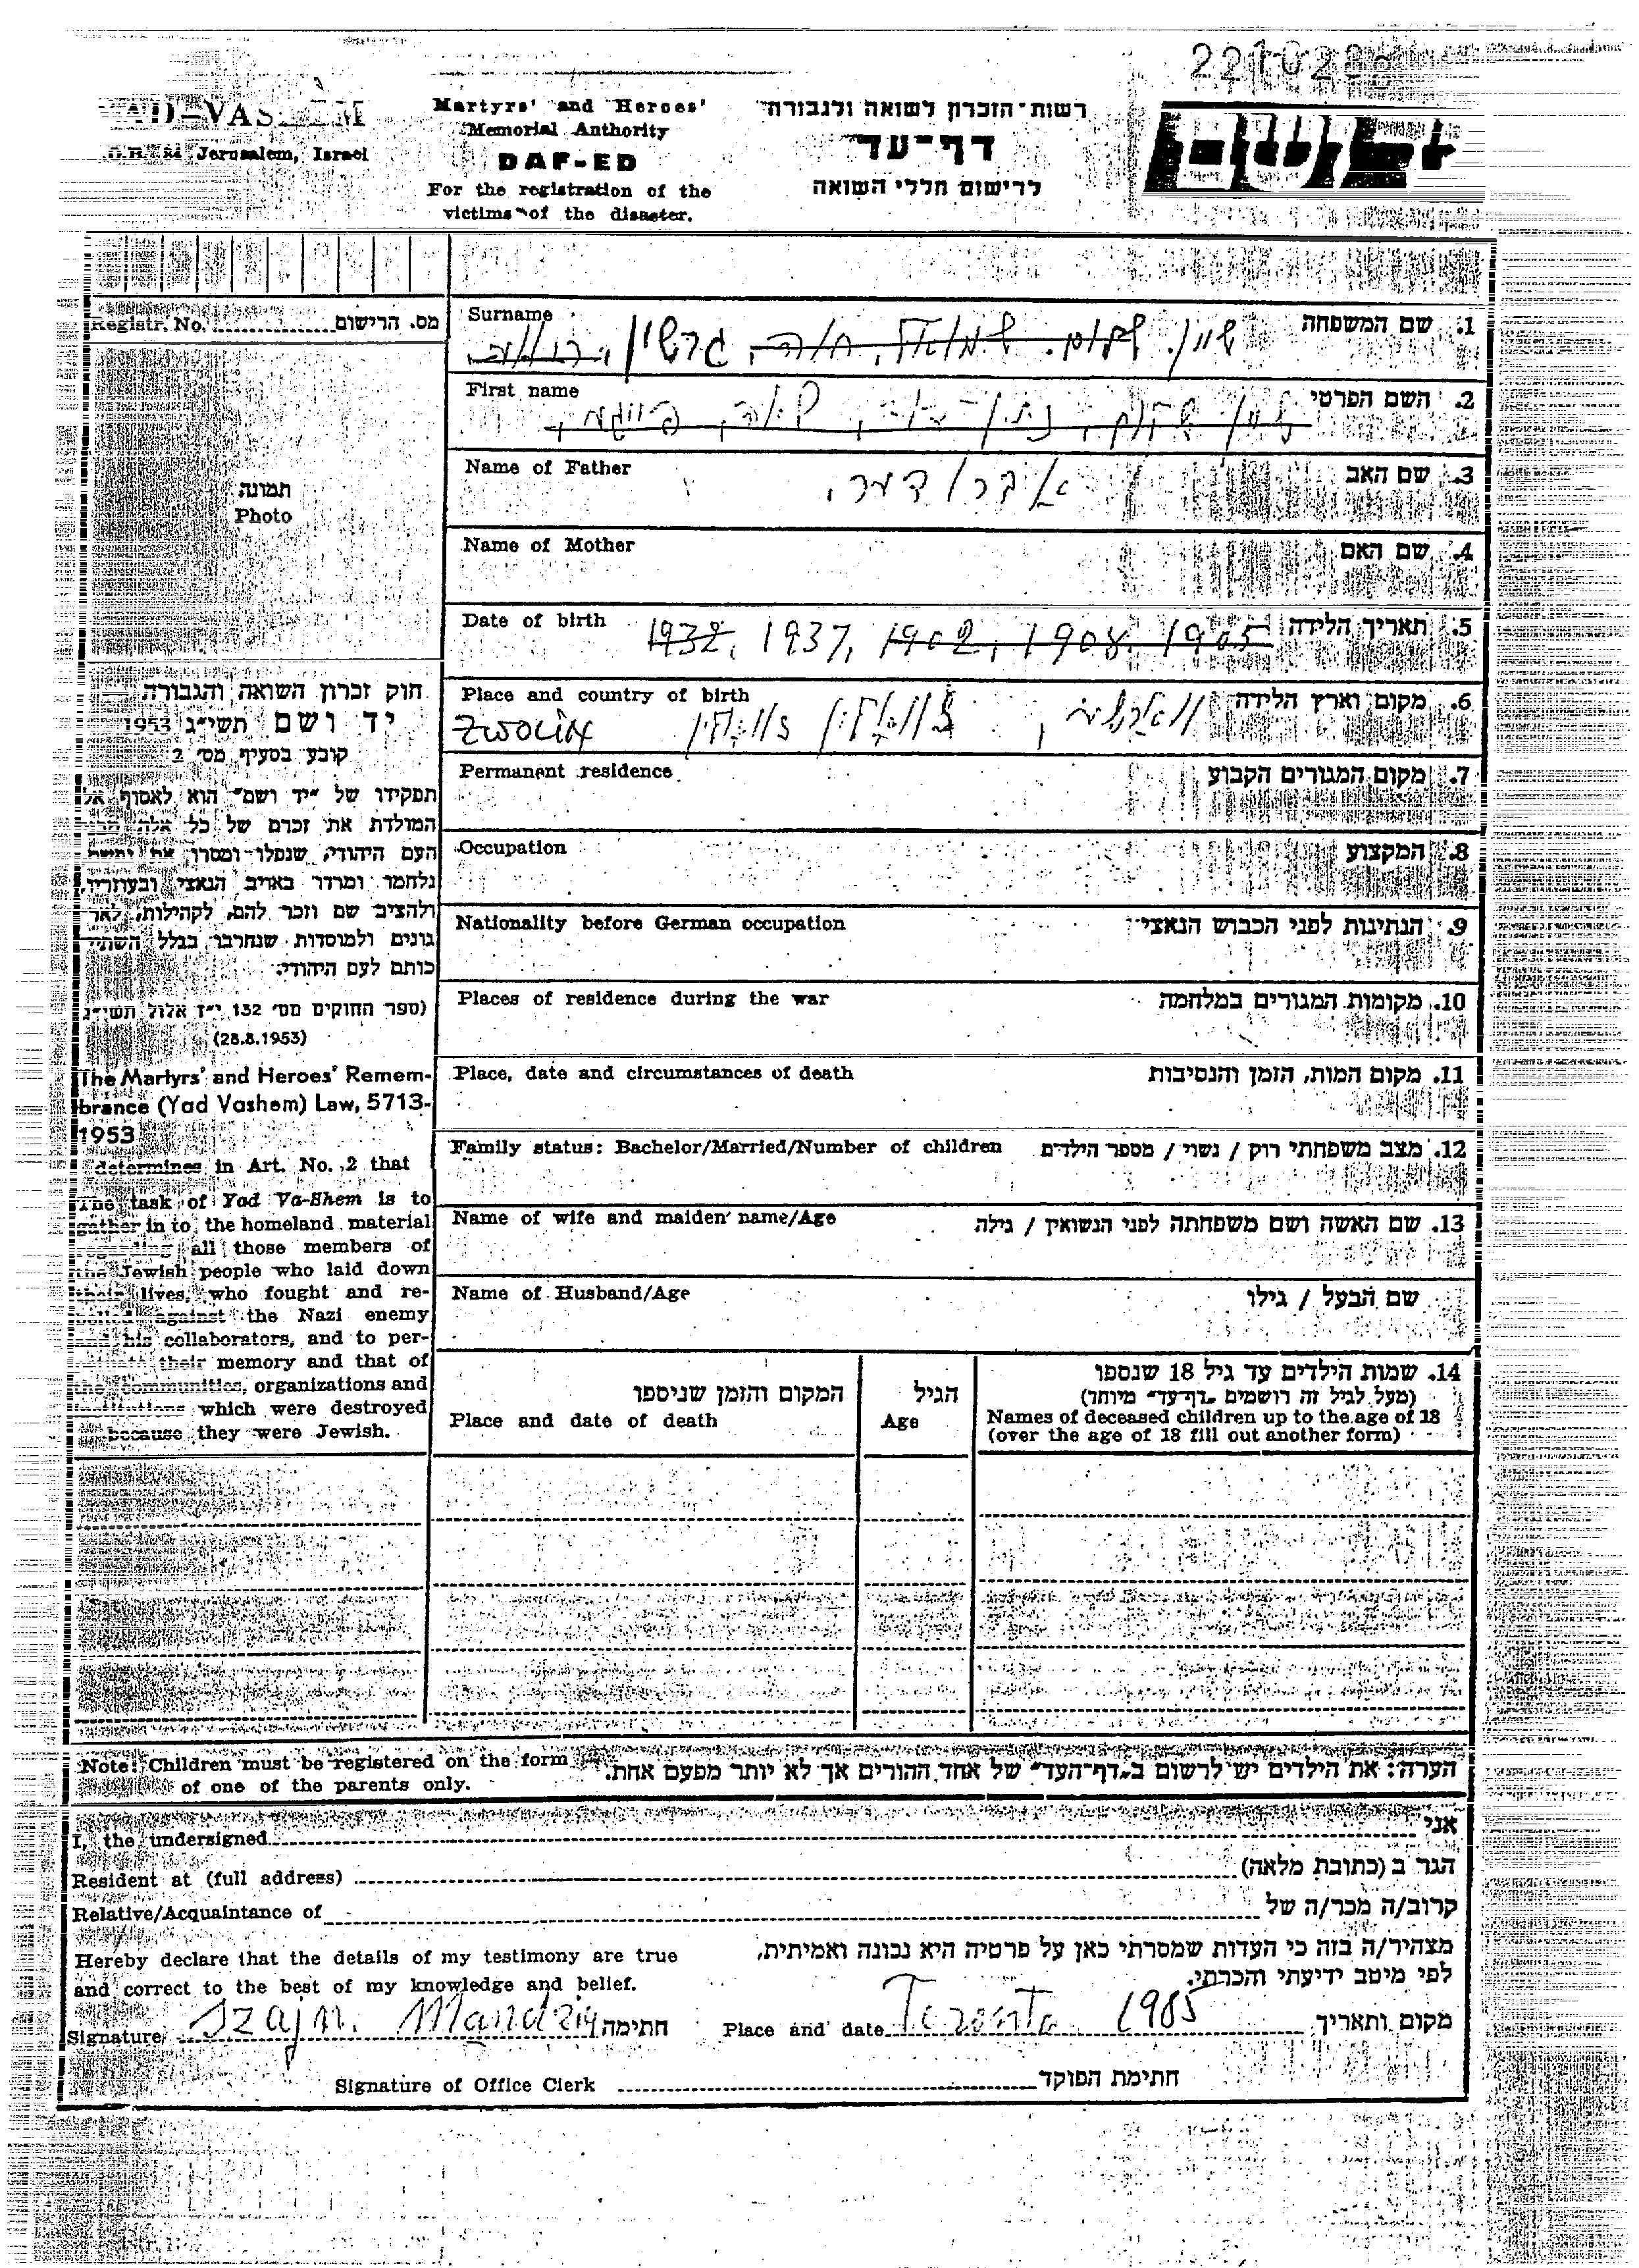 221028
YAD-VASHEM
Jerusalem, Israel
Martyrs' and Heroes'
Memorial Anthority
DAF-ED
For the registration of the
victims of the disaster.
רשות-הזכרון לשואה ולגבורה
דף-עד
לרישום חללי השואה
Registr. No. מס. הרישום
Surname 1. שם המשפחה
שיין. גרשון
First name 2. השם הפרטי
Name of Father 3. שם האב
Name of Mother 4. שם האם
Date of birth 5. תאריך הלידה
1932, 1937, 1902, 1908, 1905
Place and country of birth 6. מקום וארץ הלידה
Permanent residence 7. מקום המגורים הקבוע
Occupation 8. המקצוע
Nationality before German occupation 9. הנתינות לפני הכבוש הנאצי
Places of residence during the war 10. מקומות המגורים במלחמה
Place, date and circumstances of death 11. מקום המות, הזמן והנסיבות
Family status: Bachelor/Married/Number of children 12. מצב משפחתי רוק / נשוי / מספר הילדים
Name of wife and maiden name/Age 13. שם האשה ושם משפחתה לפני הנשואין / גילה
Name of Husband/Age שם הבעל / גילו
14. שמות הילדים עד גיל 18 שנספו
(מעל לגיל זה רושמים "דף-עד" מיוחד)
Names of deceased children up to the age of 18
(over the age of 18 fill out another form)
הגיל
Age
המקום והזמן שניספו
Place and date of death
תמונה
Photo
חוק זכרון השואה והגבורה —
יד ושם תשי"ג 1953
קובע בסעיף מס' 2
תפקידו של "יד ושם" הוא לאסוף אל
המולדת את זכרם של כל אלה
העם היהודי, שנפלו ומסרו את נפשם
נלחמו ומרדו באויב הנאצי ובעוזריו,
ולהציב שם וזכר להם, לקהילות, לאר-
גונים ולמוסדות שנחרבו בגלל השתיי-
כותם לעם היהודי.
(ספר החוקים מס' 132 י"ז אלול תשי"ג
(28.8.1953)
The Martyrs' and Heroes' Remem-
brance (Yad Vashem) Law, 5713-
1953
determines in Art. No. 2 that
The task of Yad Va-Shem is to
gather in to the homeland material
regarding all those members of
the Jewish people who laid down
their lives, who fought and re-
belled against the Nazi enemy
and his collaborators, and to per-
petuate their memory and that of
the communities, organizations and
institutions which were destroyed
because they were Jewish.
Note: Children must be registered on the form
of one of the parents only.
הערה: את הילדים יש לרשום ב"דף-העד" של אחד ההורים אך לא יותר מפעם אחת.
I, the undersigned אני
Resident at (full address) הגר ב (כתובת מלאה)
Relative/Acquaintance of קרוב/ה מכר/ה של
Hereby declare that the details of my testimony are true
and correct to the best of my knowledge and belief.
מצהיר/ה בזה כי העדות שמסרתי כאן על פרטיה היא נכונה ואמיתית,
לפי מיטב ידיעתי והכרתי.
Signature Szajn. חתימה Place and date Toronto 1985 מקום ותאריך
Signature of Office Clerk חתימת הפוקד